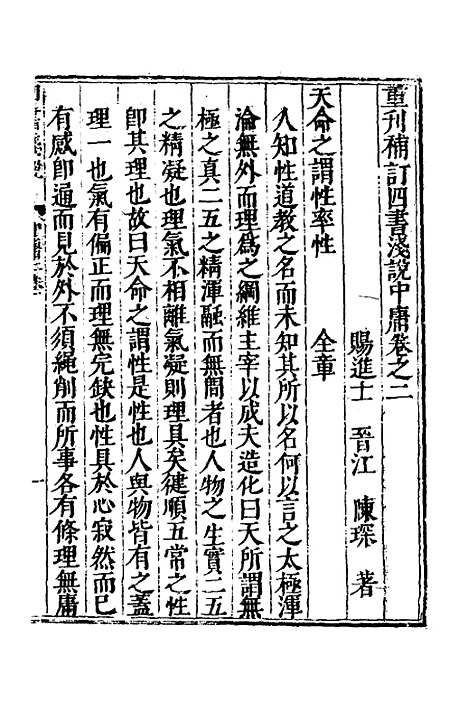 重刊補訂四書淺說中庸卷之二
賜進士 晉江 陳琛 著
天命之謂性率性 全章
人知性道教之名而未知其所以名何以言之太極渾
淪無外而理為之綱維主宰以成夫造化曰天所謂無
極之真二五之精渾融而無間者也人物之生實二五
之精凝也理氣不相離氣凝則理具矣健順五常之性
卽其理也故曰天命之謂性是性也人與物皆有之蓋
理一也氣有偏正而理無完缺也性具於心寂然而已
有感卽通而見於外不須繩削而所事各有條理無庸